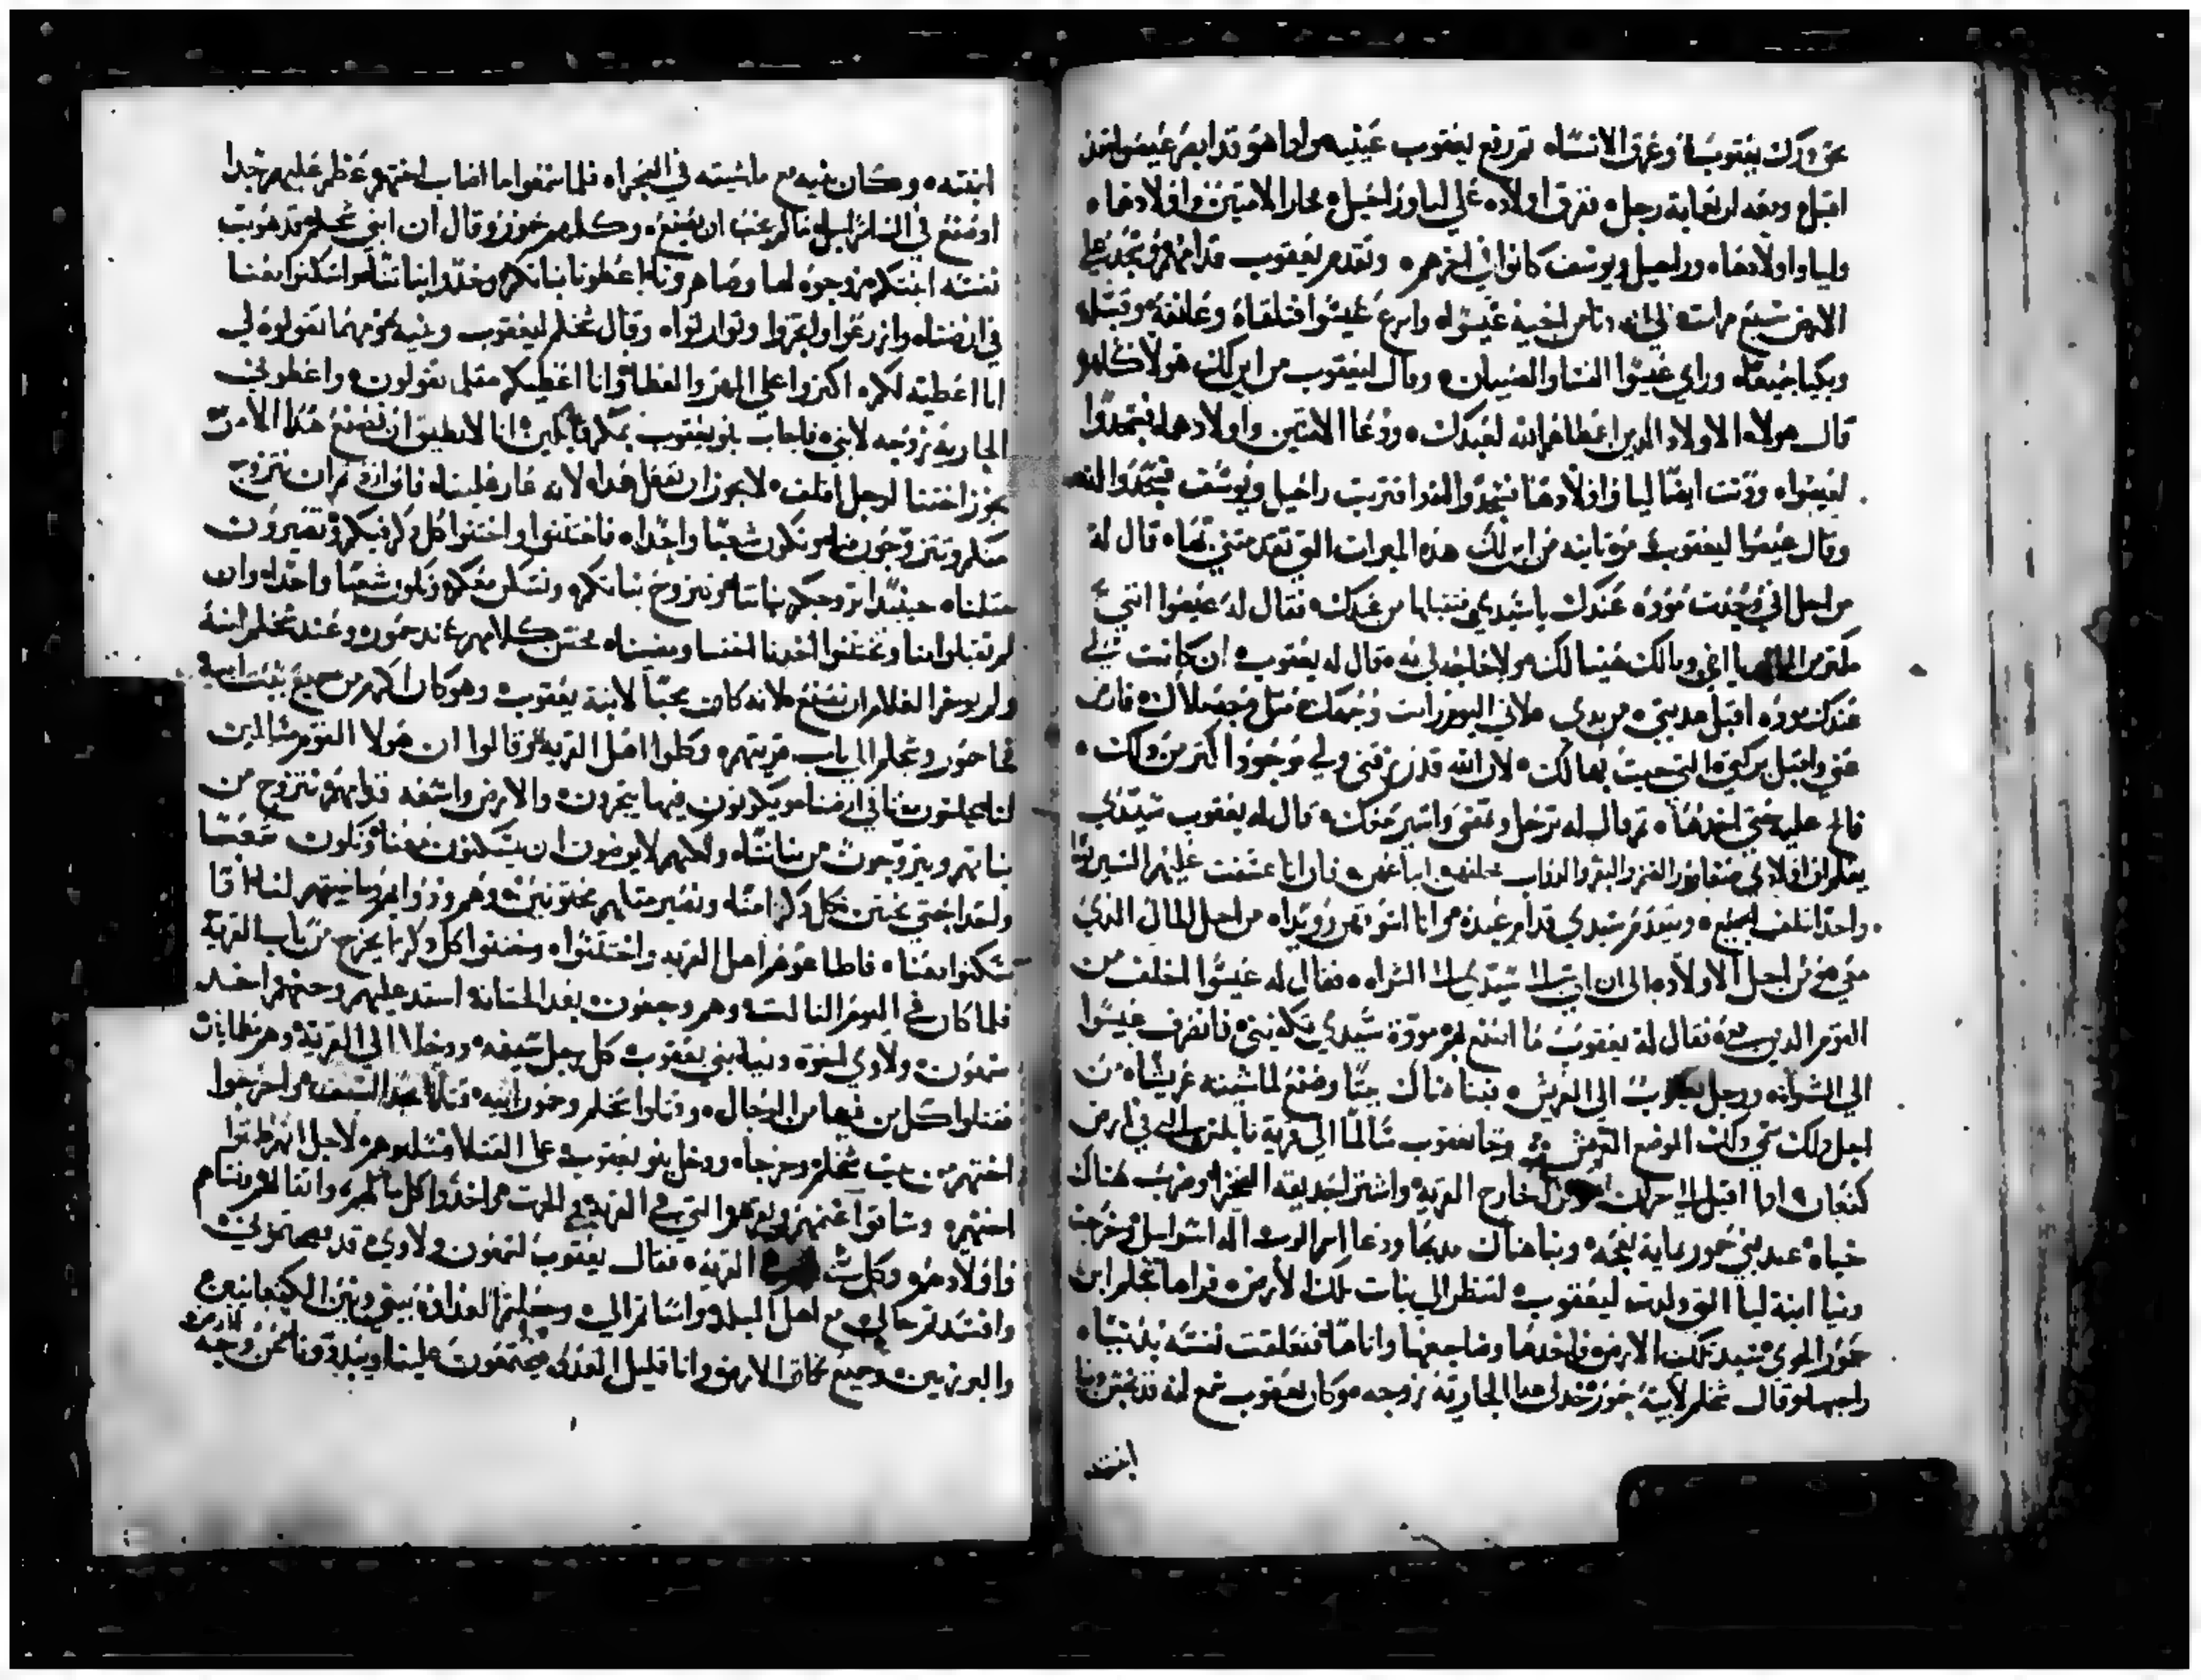 ورك يعقوب وعرق الانساه ثم رفع يعقوب عينيه واداهو قد ابصر عيصوا قد
اقبل ومعه اربعماية رجل ففرق اولاده علي ليا وراحيل وجعل الامتين واولادهما
وليا واولادها وراحيل ويوسف كانوا في اخرهم وتقدم يعقوب قدامهم وسجد علي
الارض سبع مرات الي ان دنا من اخيه عيسوا واسرع عيسوا فتلقاه وعانقه وقبله
وبكيا جميعا وراي عيسوا النسا والصبيان وقال ليعقوب من اين لك هولا كلهم
قال هولاء الاولاد الدين اعطاهم الله لعبدك ودعا الامتين واولادهما فسجدوا
لعيصوا ودنت ايضا ليا واولادها فسجدوا له فتربت راحيل ويوسف فسجدوا له
وقال عيصوا ليعقوب من اين لك هذه الميرات التي تقدمتني بها قال له
من اجل اني وجدت موده عندك ياسيدي فتقبلها من عبدك فقال له عيصوا انني
يا اخي ومالك هنيا لك قال له يعقوب ان كانت لي
عندك موده اقبل هديتي من يدي لاني اليوم رايت وجهك مثل وجه ملاك فارض
عني واقبل بركتي التي جيت بها لك لان الله قد رزقني ولي موجود اكتر من دلك
فالح عليه حتي اخدها ثم قال له نرحل ونمضي واسير معك قال له يعقوب سيدي
يعلم ان اولادي صغار والغنم والبقر
واحدا تلف الجميع ويتقدم سيدي قدام عبده وانا اسوقهم رويدا من اجل المال الدي
معي ومن اجل الاولاد الي ان اتي الي سيدي الي الشراه فقال له عيسوا اخلف من
القوم الدين معي فقال له يعقوب ما اصنع بهم مودة سيدي تكفيني فانصرف عيسوا
الي الشراه ورحل يعقوب الي العريش وبنا هناك بيتا وصنع لماشيته عريشا من
اجل دلك سمي دلك الموضع العريش وجا يعقوب سالما الي قرية نابلس التي في ارض
كنعان لما اقبل من حران ونزل خارج القريه واشترا حديقة الصخرا وضرب هناك
خباه عند بني حمور بماية نعجه وبنا هناك مدبحا ودعا اسم الرب اله اسراييل وخرجت
دينا ابنة ليا التي ولدت ليعقوب لتنظر الي بنات تلك الارض فراها شخلم ابن
حمور الحوي سيد تلك الارض فاخدها وضاجعها واتاها فتعلقت نفسه بدينا
واحبها وقال شخلم لابيه حمور خد لي هدا الجارية زوجه وكان يعقوب سمع انه قد نجس دينا
ابنته
ابنته وكان بنيه مع ماشيته في الصحراه فلما سمعوا ما اصاب اختهم عظم عليهم جدا
اد صنع في اسراييل مالم يجب ان يصنع وكلمهم حمور وقال ان ابني شخلم قد هويت
نفسه ابنتكم زوجوه لها وصاهرونا اعطونا بناتكم وخدوا بناتنا واسكنوا معنا
في ارضنا وازرعوا واتجروا وقال شخلم ليعقوب وبنيه مهما تقولوه لي
انا اعطيه لكم اكتروا علي المهر والعطا وانا اعطيكم مثل ما تقولون واعطوني
الجاريه زوجه لابني فاجاب بنو يعقوب بمكر قايلين انا لا نطيق ان نصنع هدا الامر
نجوز اختنا لرجل اقلف لا يجوز ان نفعل هدا لانه عار علينا فان اردتم ان نتزوج
منكم وتتزوجون منا ونكون شعبا واحدا فاختتنوا واختنوا كل دكر فيكم وتصيرون
مثلنا حينيد نزوجكم بناتنا ونتزوج بناتكم ونسكن معكم ونكون شعبا واحدا وان
لم تقبلوا منا وتختتنوا اخدنا اختنا ومضينا فحسن كلامهم عند حمور وعند شخلم ابنه
ولم يوخر الغلام ان يصنع لانه كان محبا لابنة يعقوب وهو كان اكرم من جميع بيت ابيه
فجا حمور وشخلم الي باب قريتهم وكلموا اهل القريه وقالوا ان هولا القوم مسالمين
لنا يجلسون معنا في ارضنا ويكونون فيها يتجرون والارض واسعه قدامهم ونتزوج من
بناتهم ويتزوجون من بناتنا ولكنهم لا يرضون ان يسكنون معنا ونكون شعبا
واحدا حتي نختتن كل دكر منا ونصير مثلهم مختونين وهم ودوابهم وماشيتهم لنا ادا
سكنوا معنا فاطاعوهم اهل القريه واختتنوا وختنوا كل دكر ما يخرج من باب القرية
فلما كان في اليوم الثالث وهم وجعون بعد الختانه اشتد عليهم وجعهم اخد
شمعون ولاوي اخوة دينا بني يعقوب كل رجل سيفه ودخلا الي القرية وهم مطمانان
فقتلوا كل من فيها من الرجال وقتلوا شخلم وحمور ابيه بحد السيف واخرجوا
اختهم من بيت شخلم وخرجا ودخل بنو يعقوب علي القتلا لاجل انهم
اختهم وساقوا غنمهم وبقرهم التي في القريه واخدوا كل مالهم
واولادهم وكل في القريه فقال يعقوب لشمعون ولاوي قد
وافسدتم حالي مع اهل البلد واساتم الي وجعلتم العداوة بيني وبين الكنعانيين
والبرزيين وجميع سكان الارض وانا قليل العدد فيجتمعون علينا ويبددونا